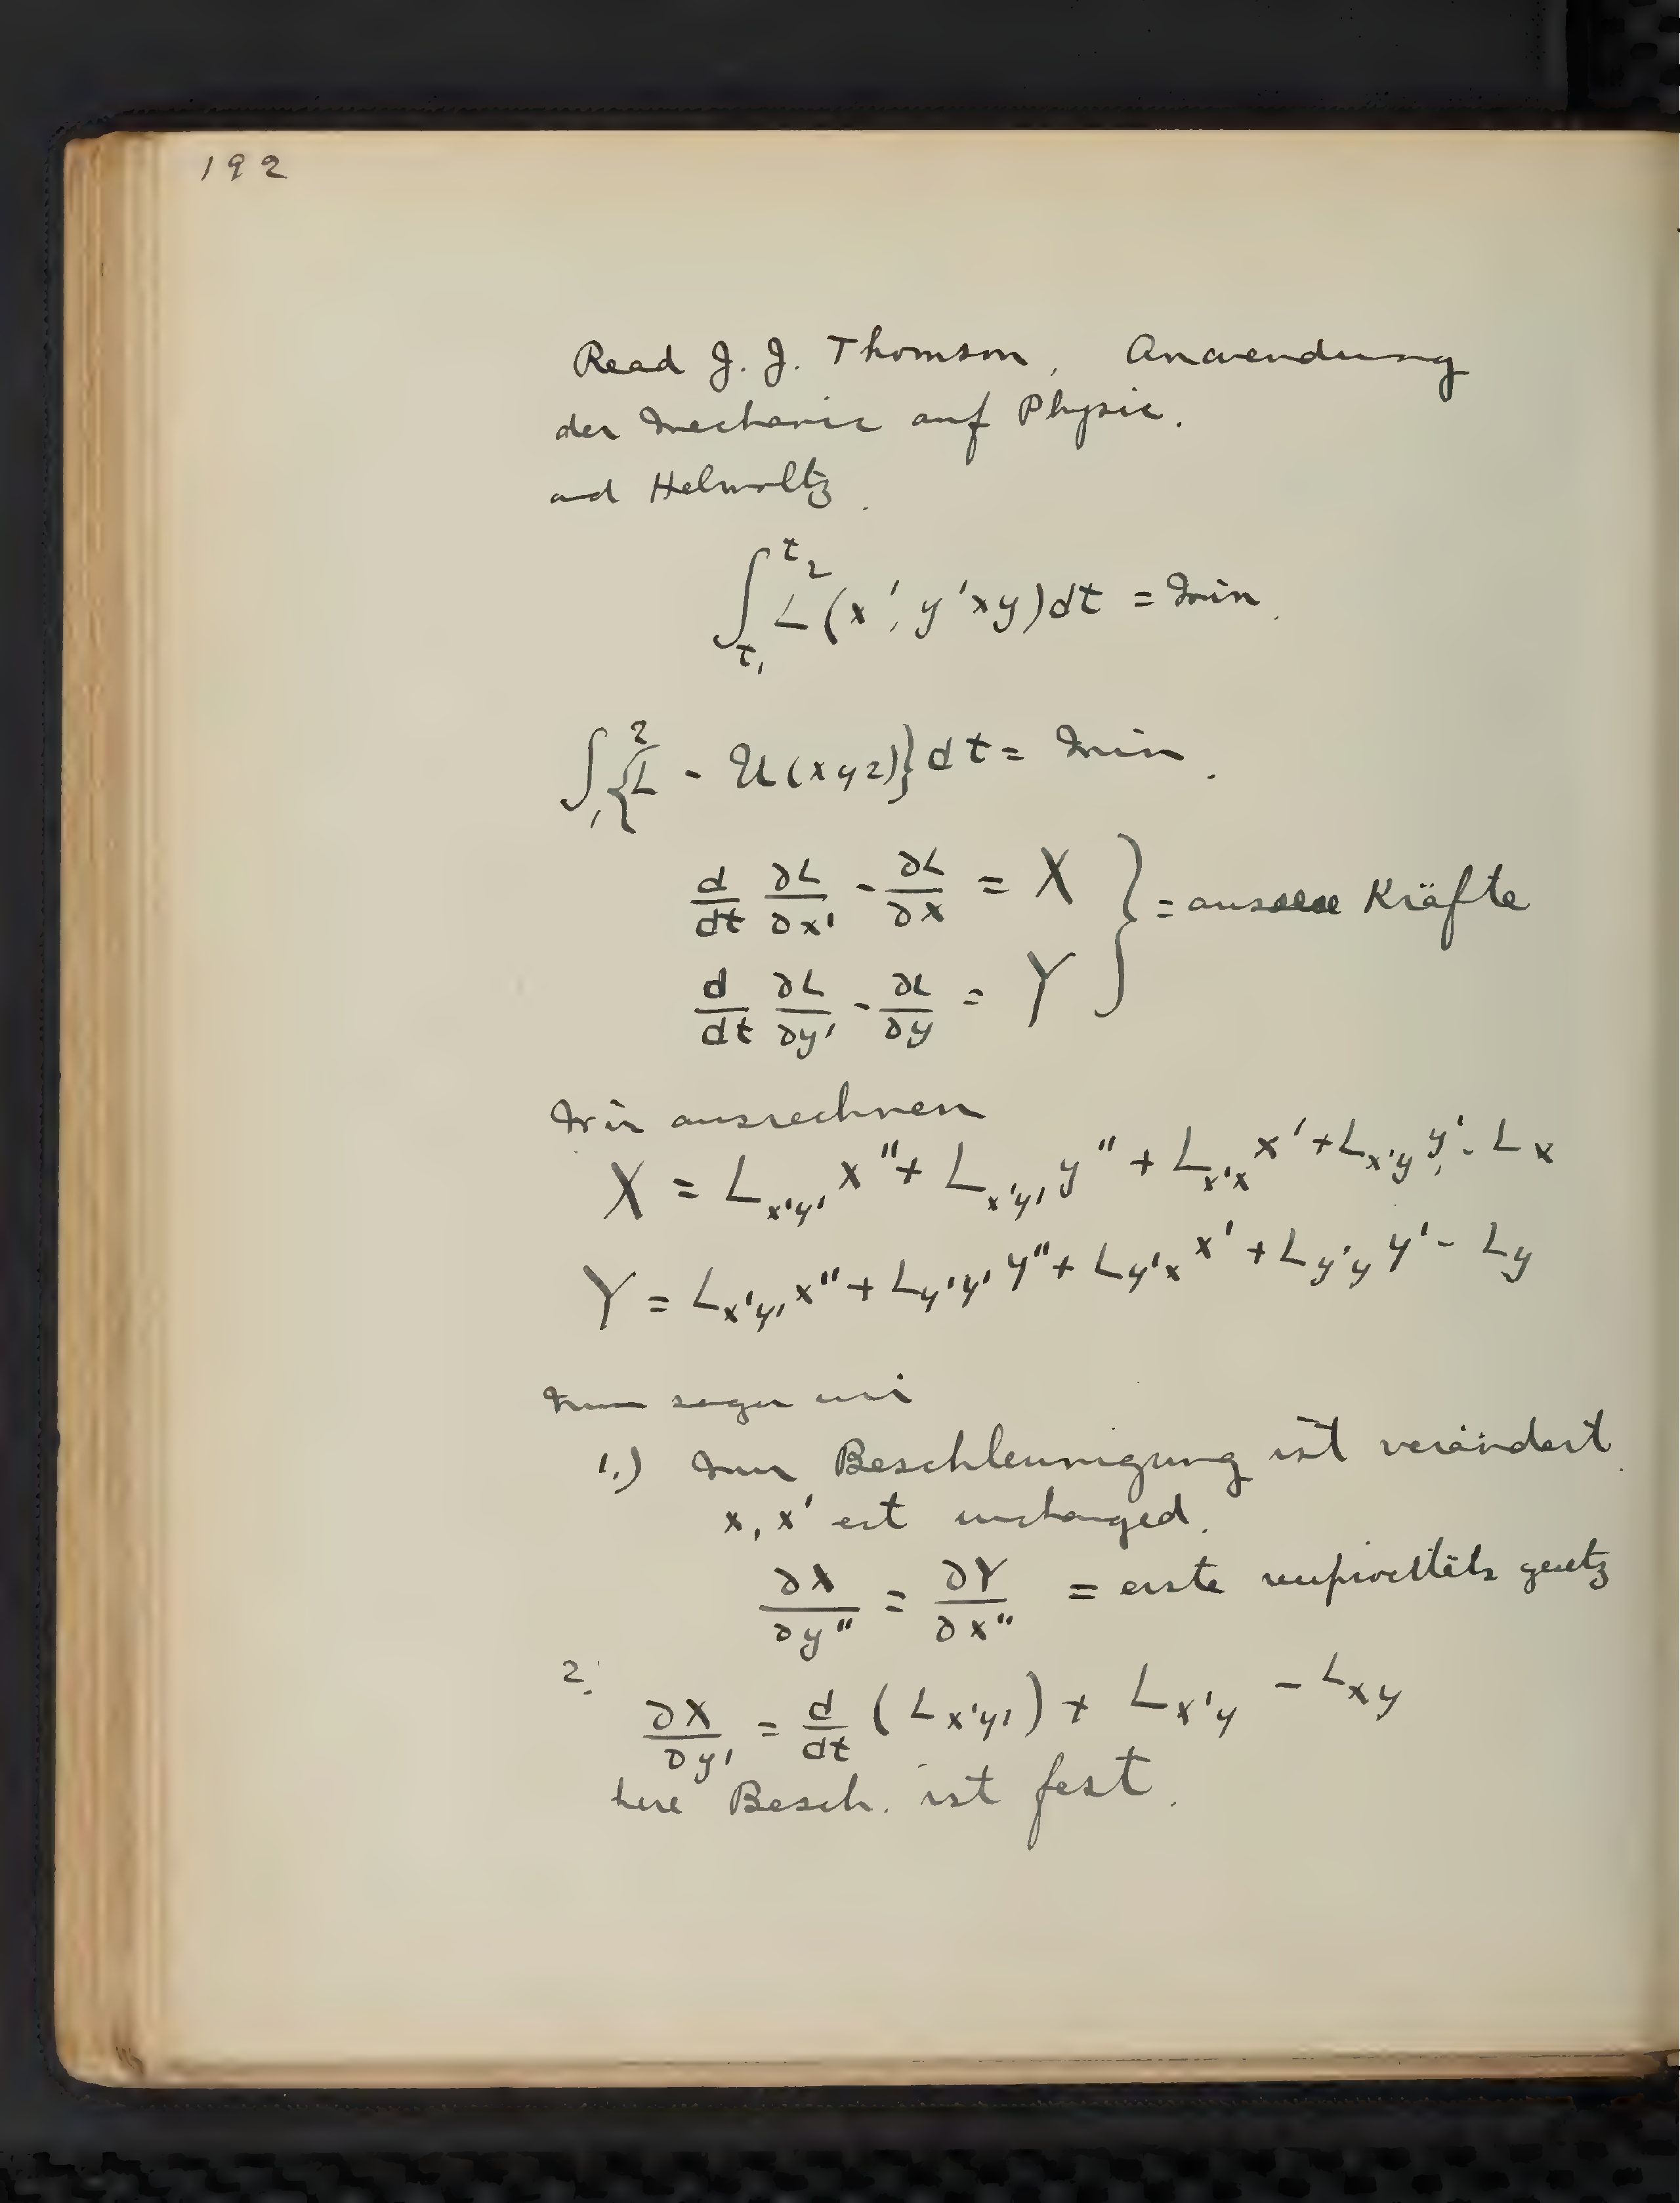 192
Read J. J. Thomson, Anwendung
der Mechanic auf Physic.
and Helmoltz.
∫_{t_1}^{t_2} L(x', y'xy)dt = Min.
∫_1^2 {L - U(xyz)}dt = Min.
d/dt ∂L/∂x' - ∂L/∂x = X } = aussere Kräfte
d/dt ∂L/∂y' - ∂L/∂y = Y
Wir ausrechnen
X = L_{x'y'} x'' + L_{x'y'} y'' + L_{x'x} x' + L_{x'y} y' - L_x
Y = L_{x'y'} x'' + L_{y'y'} y'' + L_{y'x} x' + L_{y'y} y' - L_y
Nun sagen wir
1.) Nur Beschleunigung ist verändert.
x, x' ist unchanged.
∂X/∂y'' = ∂Y/∂x'' = erste gesetz
2. ∂X/∂y' = d/dt (L_{x'y'}) + L_{x'y} - L_{xy}
here Besch. ist fest.